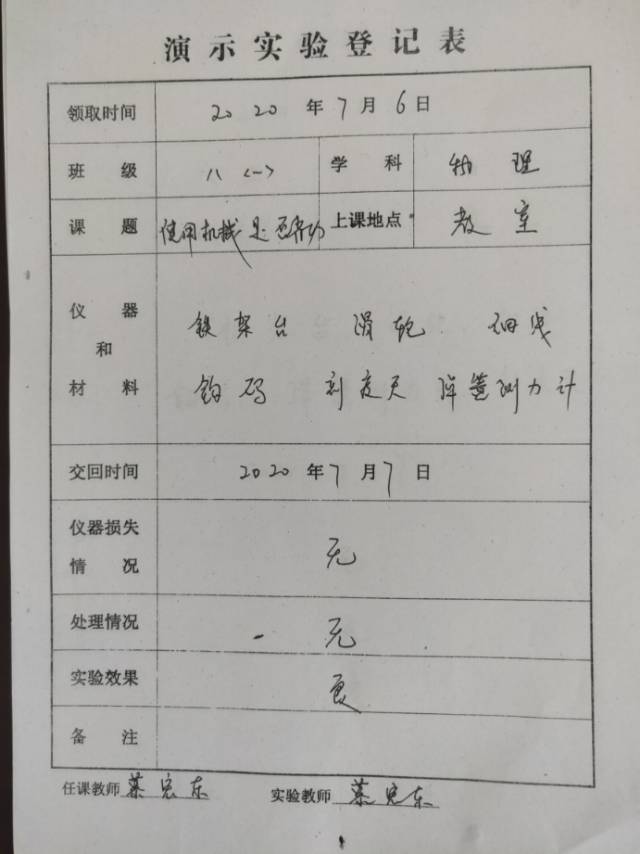 演示实验登记表
领取时间 2020年7月6日
班级 八<一> 学科 物理
课题 使用机械是否省功 上课地点 教室
仪器
和
材料
铁架台 滑轮 细线
钩码 刻度尺 弹簧测力计
交回时间 2020年7月7日
仪器损失
情况
无
处理情况 无
实验效果 良
备注
任课教师 慕宏东 实验教师 慕宏东